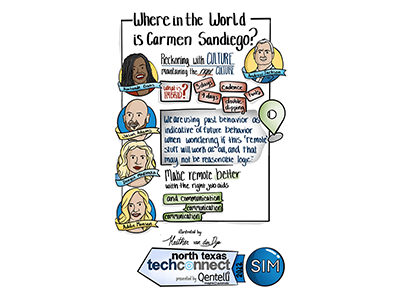 Where in the World
is Carmen Sandiego?
Reckoning with CULTURE,
maintaining the right CULTURE
What is HYBRID?
3 days
4 days
cadence
Fuel
double dipping
We are using past behavior as
indicative of future behavior
when wondering if this "remote
stuff will work at all, and that
may not be reasonable logic."
Make remote better
with the right job aids
and communication
communication
communication
illustrated by
Heather van der Dys
north texas
techconnect
presented by Qentelli
2022
SIM